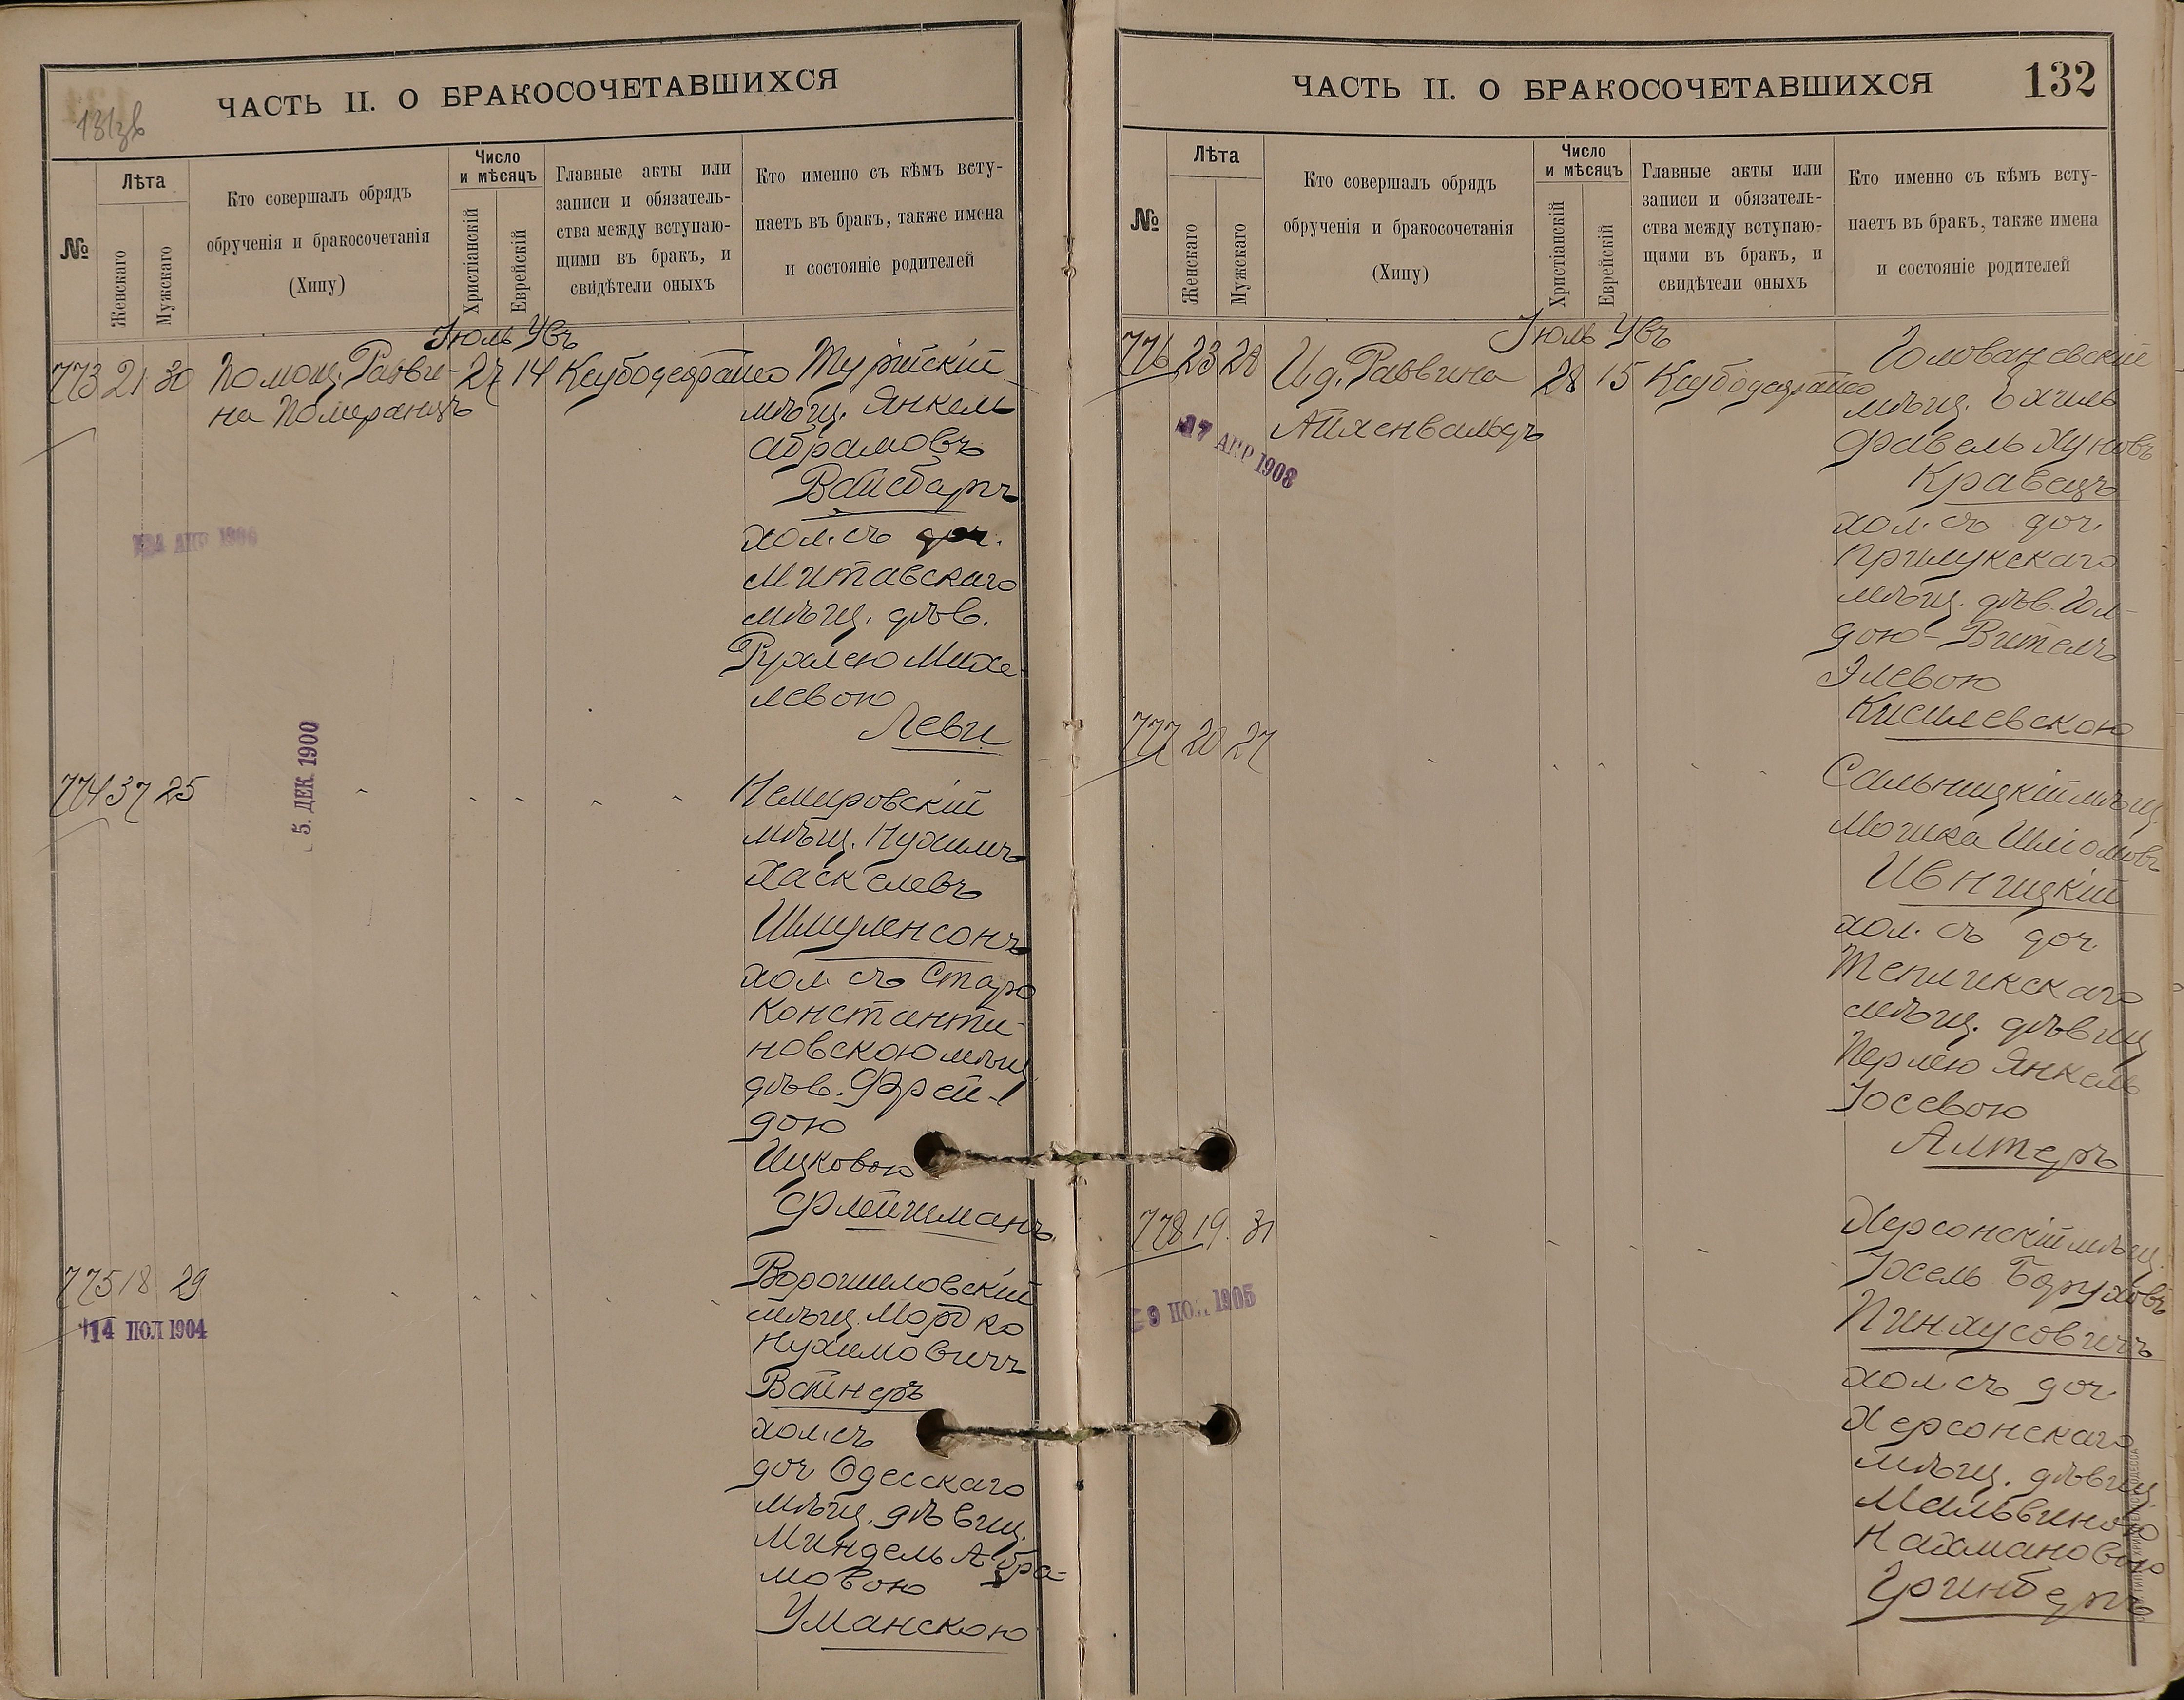 131зв
ЧАСТЬ II. О БРАКОСОЧЕТАВШИХСЯ
№
Лѣта
Женскаго
Мужскаго
Кто совершалъ обрядъ
обрученія и бракосочетанія
(Хипу)
Число
и мѣсяцъ
Христіанскій
Еврейскій
Главные акты или
записи и обязатель-
ства между вступаю-
щими въ бракъ, и
свидѣтели оныхъ
Кто именно съ кѣмъ всту-
паетъ въ бракъ, также имена
и состояніе родителей
Іюль Увъ
773 21 30 Помощ. Равви- 27 14
на Померанцъ
Турійскій
мѣщ. Янкель
Абрамовъ
Вайсбергъ
хол. съ доч.
Митавскаго
мѣщ. дѣв.
Рухлею Михе-
левою
Леви
24 АПР
5. ДЕК. 1900
774 37 25
Немировскій
мѣщ. Нухимъ
Хаскелевъ
Шмуленсонъ
хол. съ Старо
Константи-
новскою мѣщ.
дѣв. Фрей-
дою
Ицковою
Флейшманъ
775 18 29
14 ІЮЛ 1904
Ворошиловскій
мѣщ. Мордко
Нухимовичъ
Вайнеръ
хол. съ
доч Одесскаго
мѣщ. дѣвиц.
Миндель Абра-
мовою
Уманскою
ЧАСТЬ II. О БРАКОСОЧЕТАВШИХСЯ
132
№
Лѣта
Женскаго
Мужскаго
Кто совершалъ обрядъ
обрученія и бракосочетанія
(Хипу)
Число
и мѣсяцъ
Христіанскій
Еврейскій
Главные акты или
записи и обязатель-
ства между вступаю-
щими въ бракъ, и
свидѣтели оныхъ
Кто именно съ кѣмъ всту-
паетъ въ бракъ, также имена
и состояніе родителей
Іюль Увъ
776 23 28 И.д. Раввина 28 15
Айхенвальдъ
17 АПР 1908
Голованевскій
мѣщ. Ехиль
Файвель Хуновъ
Кравецъ
хол. съ доч.
Прилукскаго
мѣщ. дѣв. Гол-
дою-Вителъ
Элевою
Кисилевскою
777 20 27
Сальницкій мѣщ.
Мошка Шліомовъ
Ивницкій
хол. съ доч.
Тепликскаго
мѣщ. дѣвиц
Перлею Янкель
Іосевою
Алтеръ
778 19 31
1905
Херсонскій мѣщ.
Іосель Баруховъ
Пинхусовичъ
хол. съ доч.
Херсонскаго
мѣщ. дѣвиц.
Мальвиною
Нахмановою
Гринбергъ